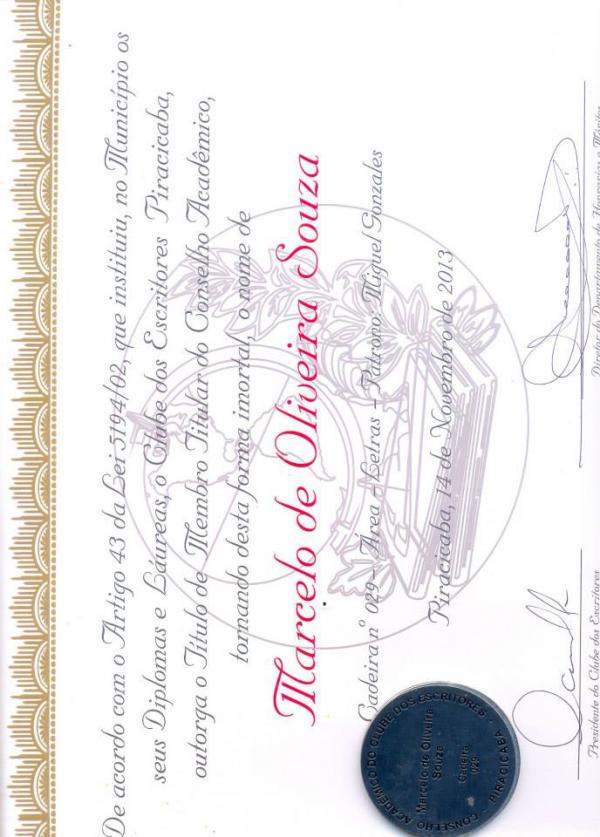 De acordo com o Artigo 43 da Lei 5194/02, que instituiu, no Município os
seus Diplomas e Láureas, o Clube dos Escritores Piracicaba,
outorga o Título de Membro Titular do Conselho Acadêmico,
tornando desta forma imortal, o nome de
Marcelo de Oliveira Souza
Cadeira nº 029 - Área - Letras - Patrono - Miguel Gonzales
Piracicaba, 14 de Novembro de 2013
CONSELHO ACADÊMICO DO CLUBE DOS ESCRITORES - PIRACICABA -
Marcelo de Oliveira
Souza
Cadeira
029
Presidente do Clube dos Escritores
Diretor do Departamento de Honrarias e Méritos